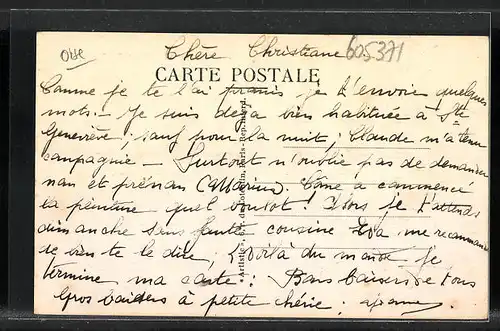 Oise
605371
Chère Christiane
CARTE POSTALE
Comme je te l'ai promis je t'envoie quelques
mots. - Je suis déjà bien habituée à Ste
Geneviève ; sauf pour la nuit ; Claude m'a tenu
compagnie - Surtout n'oublie pas de demander
nom et prénom Marius. a commencé
la peinture quel ! Alors je t'attends
dimanche sans faute cousine me recommande
de bien te le dire ; Voilà du monde je
termine ma carte : Bons baisers de tous
Gros baisers à petite chérie :